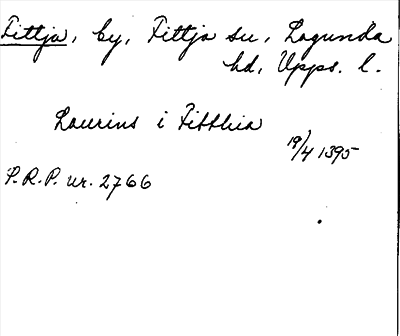 Fittja, by, Fittja sn, Lagunda
hd, Upps. l.
Laurins i Fitthia
19/4 1395
P.R.P. nr. 2766